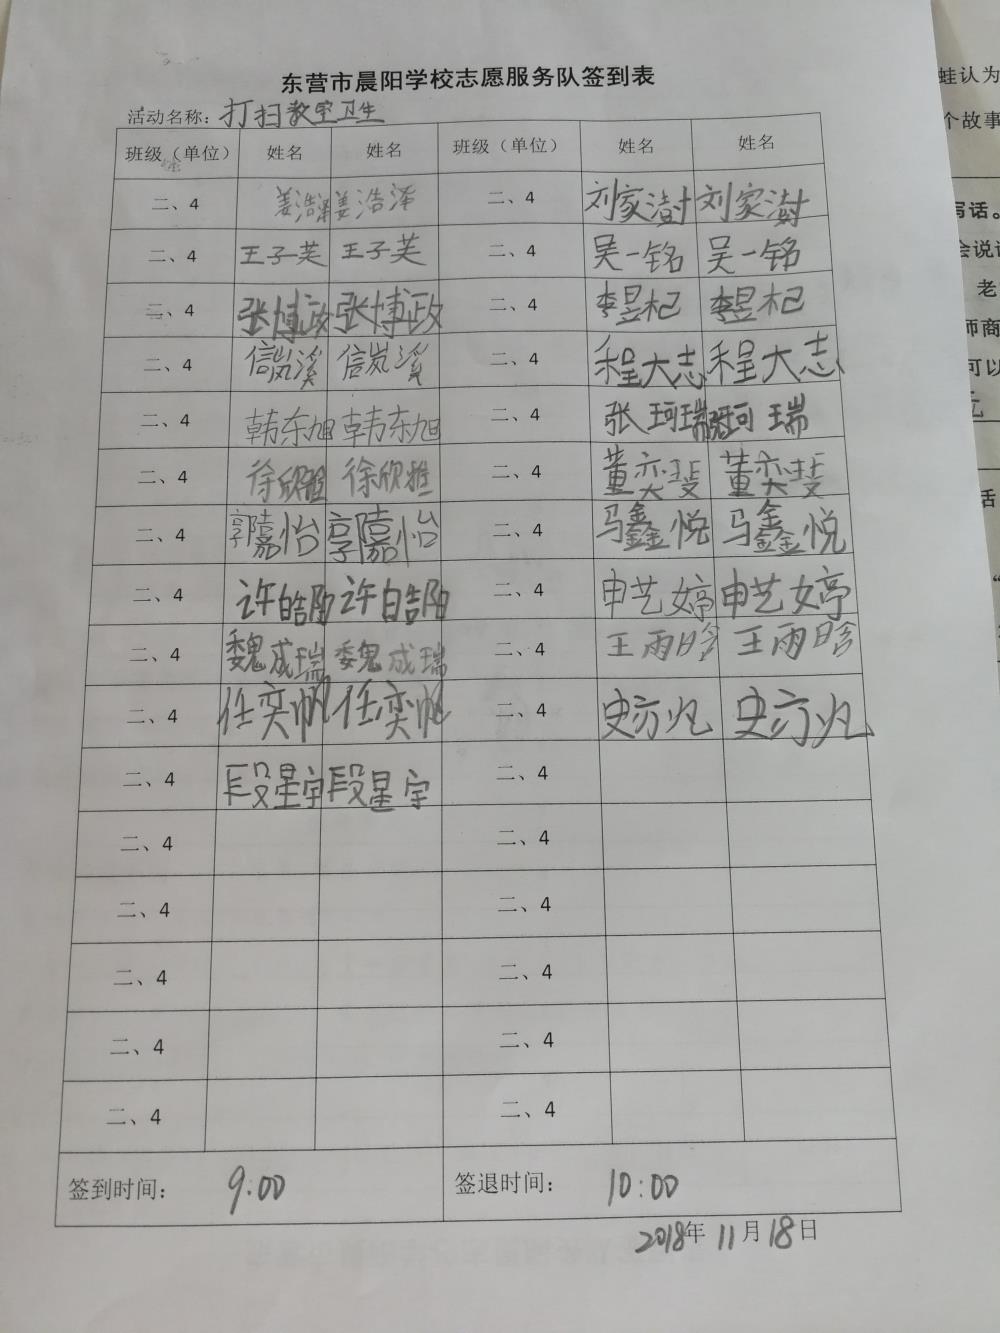 东营市晨阳学校志愿服务队签到表
活动名称：打扫教室卫生
班级（单位） 姓名 姓名 班级（单位） 姓名 姓名
二、4 姜浩泽 姜浩泽 二、4 刘家澍 刘家澍
二、4 王子芙 王子芙 二、4 吴一铭 吴一铭
二、4 张博政 张博政 二、4 李昱杞 李昱杞
二、4 信岚溪 信岚溪 二、4 程大志 程大志
二、4 韩东旭 韩东旭 二、4 张珂瑞 张珂瑞
二、4 徐欣雅 徐欣雅 二、4 董奕斐 董奕斐
二、4 郭嘉怡 郭嘉怡 二、4 马鑫悦 马鑫悦
二、4 许皓阳 许皓阳 二、4 申艺婷 申艺婷
二、4 魏成瑞 魏成瑞 二、4 王雨晗 王雨晗
二、4 任奕帆 任奕帆 二、4 史亦凡 史亦凡
二、4 段星宇 段星宇 二、4
二、4 二、4
二、4 二、4
二、4 二、4
二、4 二、4
二、4 二、4
签到时间： 9:00 签退时间： 10:00
2018年11月18日
蛙认为
个故事
写话。
会说
老
师商
可以
元
话